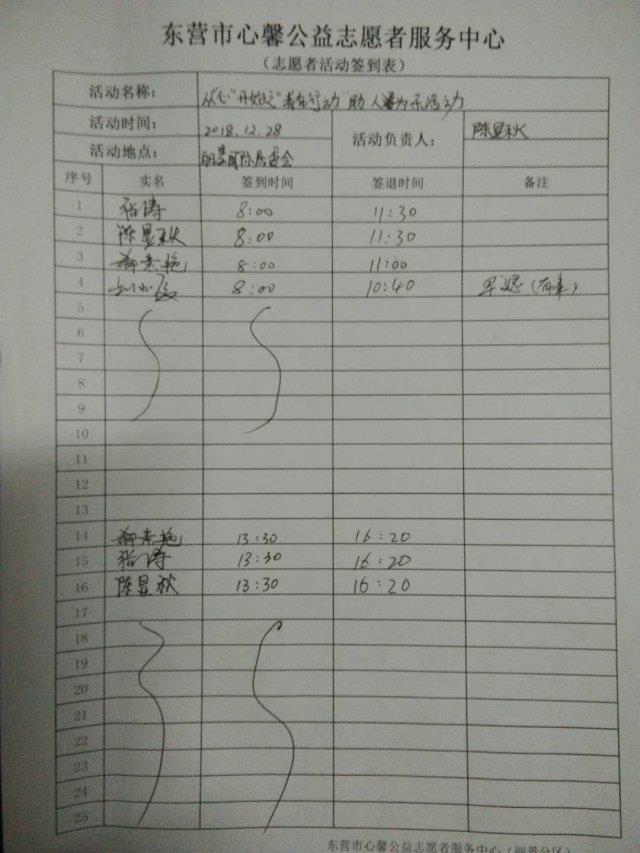 东营市心馨公益志愿者服务中心
（志愿者活动签到表）
活动名称： 从“心”开始之“我在行动”助人为乐活动
活动时间： 2018.12.28 活动负责人： 陈显秋
活动地点： 居委会
序号 实名 签到时间 签退时间 备注
1 张涛 8:00 11:30
2 陈显秋 8:00 11:30
3 8:00 11:00
4 8:00 10:40 早退（有事）
5
6
7
8
9
10
11
12
13
14 13:30 16:20
15 张涛 13:30 16:20
16 陈显秋 13:30 16:20
17
18
19
20
21
22
23
24
25
东营市心馨公益志愿者服务中心（丽景分区）